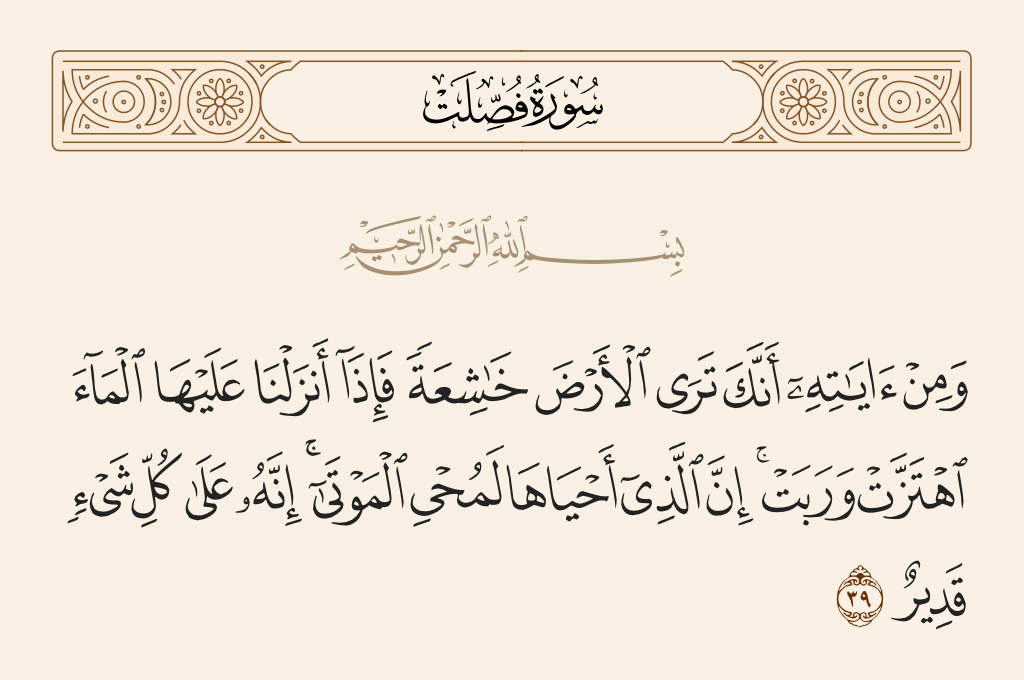 سُورَةُ فُصِّلَتْ
بِسْمِ ٱللَّهِ ٱلرَّحْمَٰنِ ٱلرَّحِيمِ
وَمِنْ ءَايَٰتِهِۦٓ أَنَّكَ تَرَى ٱلْأَرْضَ خَٰشِعَةً فَإِذَآ أَنزَلْنَا عَلَيْهَا ٱلْمَآءَ
ٱهْتَزَّتْ وَرَبَتْ ۚ إِنَّ ٱلَّذِىٓ أَحْيَاهَا لَمُحْىِ ٱلْمَوْتَىٰٓ ۚ إِنَّهُۥ عَلَىٰ كُلِّ شَىْءٍ
قَدِيرٌ ٣٩